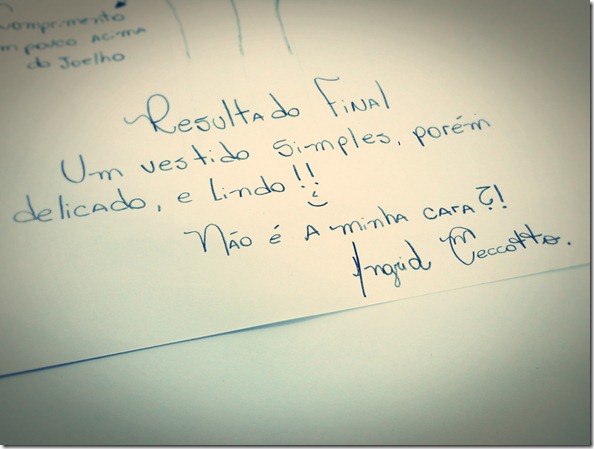 Comprimento
um pouco acima
do Joelho
Resultado Final
Um vestido simples, porém
delicado, e lindo!!
Não é a minha cara?!
Ingrid Ceccotto.